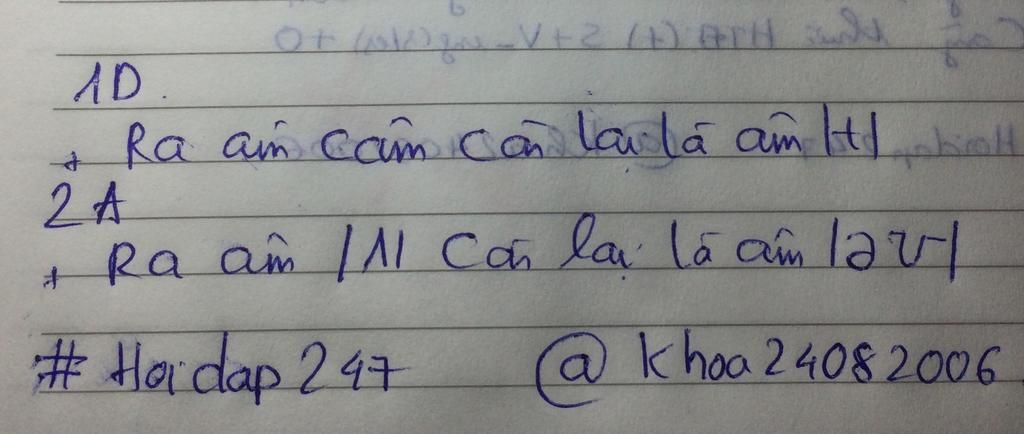 1D.
+ Ra âm câm còn lại là âm |t|
2A
+ Ra âm |1| Còn lại là âm |əʊ|
#Hoidap247 @khoa24082006